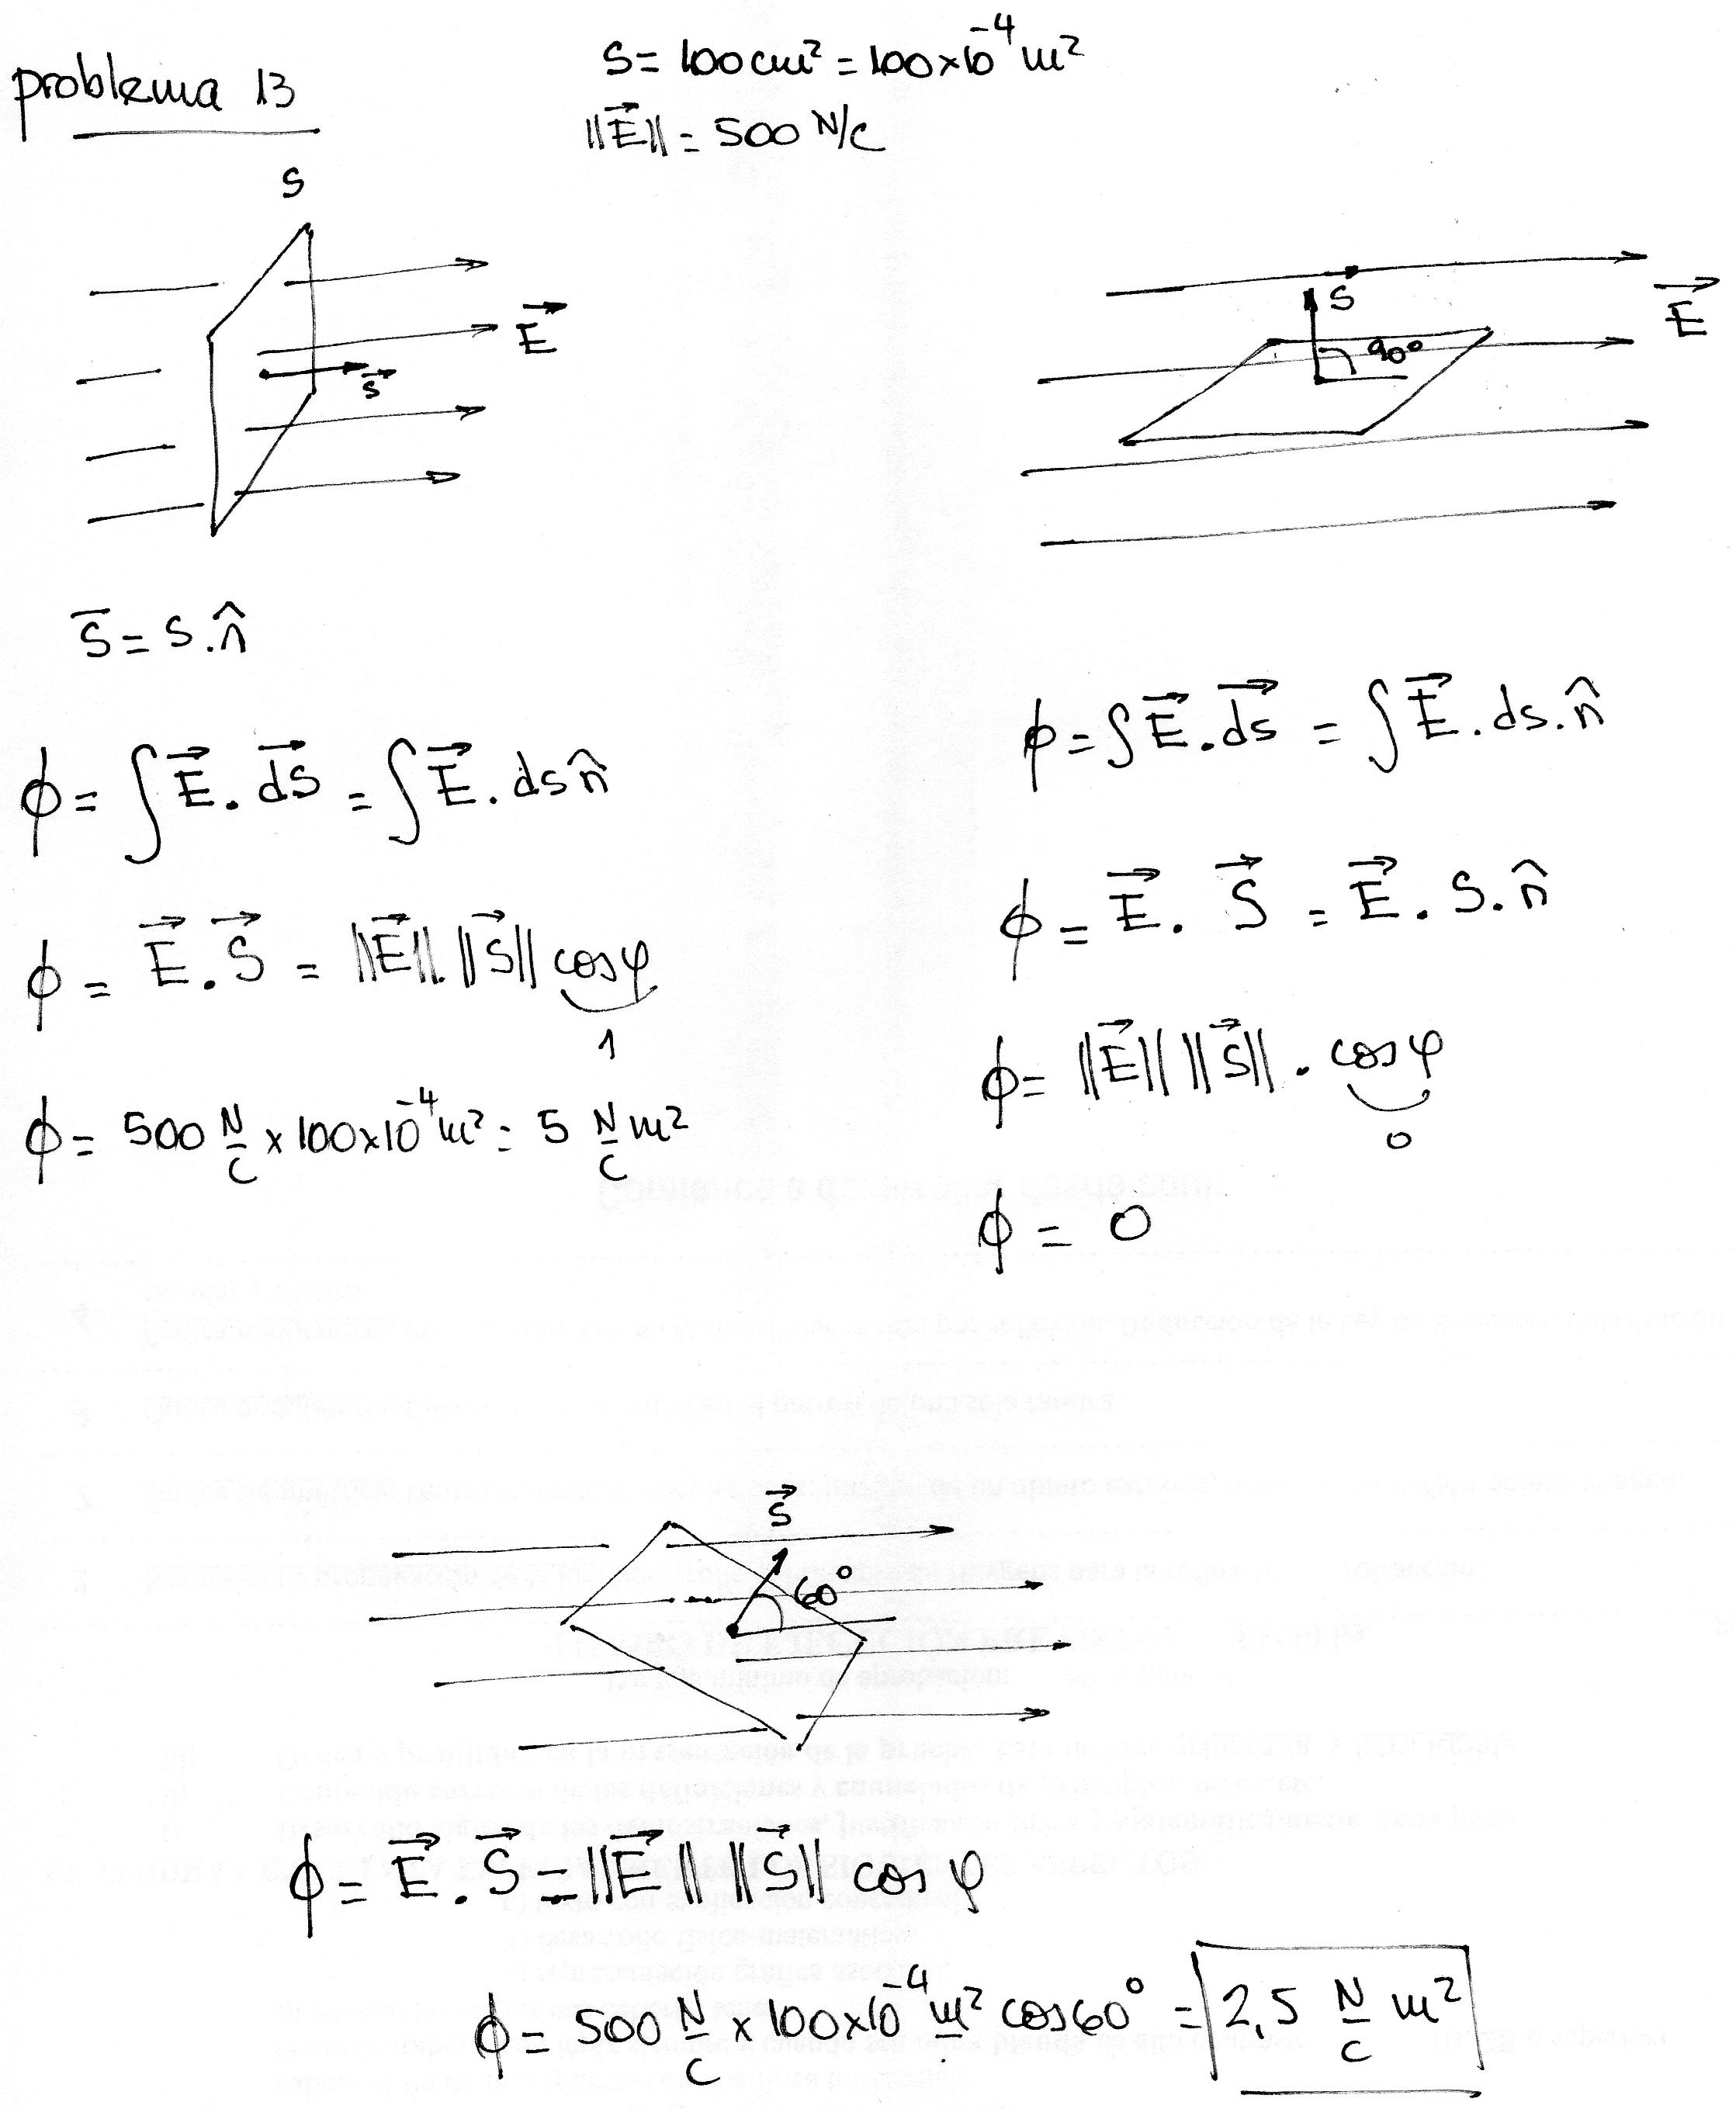 problema 13
S = 100 cm² = 100x10⁻⁴ m²
||E⃗|| = 500 N/C
S
E⃗
s⃗
S
E⃗
90°
S̄ = S.n̂
ϕ = ∫E⃗.dS⃗ = ∫E⃗.ds n̂
ϕ = E⃗.S⃗ = ||E⃗||.||S⃗|| cosφ
1
ϕ = 500 N/C x 100x10⁻⁴ m² = 5 N/C m²
ϕ = ∫E⃗.ds⃗ = ∫E⃗.ds.n̂
ϕ = E⃗.S⃗ = E⃗.S.n̂
ϕ = ||E⃗|| ||S⃗||.cosφ
0
ϕ = 0
S⃗
60°
ϕ = E⃗.S⃗ = ||E⃗|| ||S⃗|| cos φ
ϕ = 500 N/C x 100x10⁻⁴ m² cos60° = 2,5 N/C m²